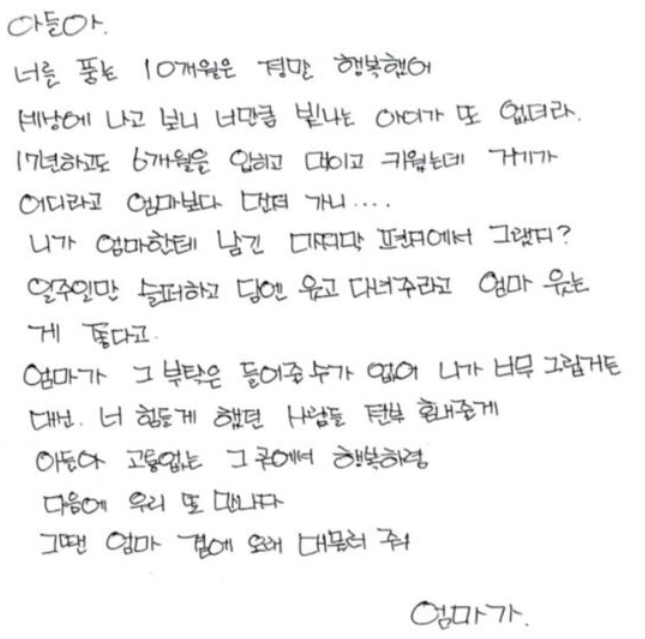 아들아.
너를 품는 10개월은 정말 행복했어
세상에 나고 보니 너만큼 빛나는 아이가 또 없더라.
17년하고도 6개월을 입히고 먹이고 키웠는데 거기가
어디라고 엄마보다 먼저 가니....
니가 엄마한테 남긴 마지막 편지에서 그랬지?
일주일만 슬퍼하고 담엔 웃고 다녀주라고 엄마 웃는
게 좋다고.
엄마가 그 부탁은 들어줄 수가 없어 니가 너무 그립거든
대신. 너 힘들게 했던 사람들 전부 혼내줄게
아들아 고통없는 그 곳에서 행복하렴
다음에 우리 또 만나자
그땐 엄마 곁에 오래 머물러 줘
엄마가.